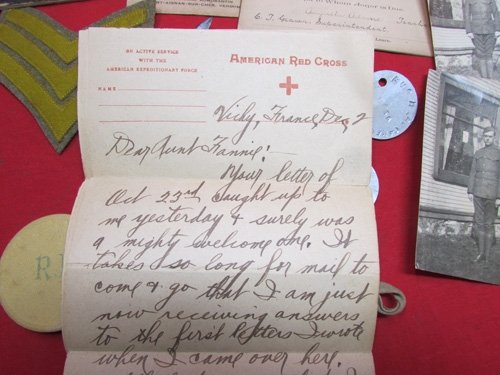 ON ACTIVE SERVICE
WITH THE
AMERICAN EXPEDITIONARY FORCE
AMERICAN RED CROSS
NAME
Vichy, France, Dec, 2
Dear Aunt Fannie:
Your letter of
Oct 23rd caught up to
me yesterday & surely was
a mighty welcome one. It
takes so long for mail to
come & go that I am just
now receiving answers
to the first letters I wrote
when I came over here.